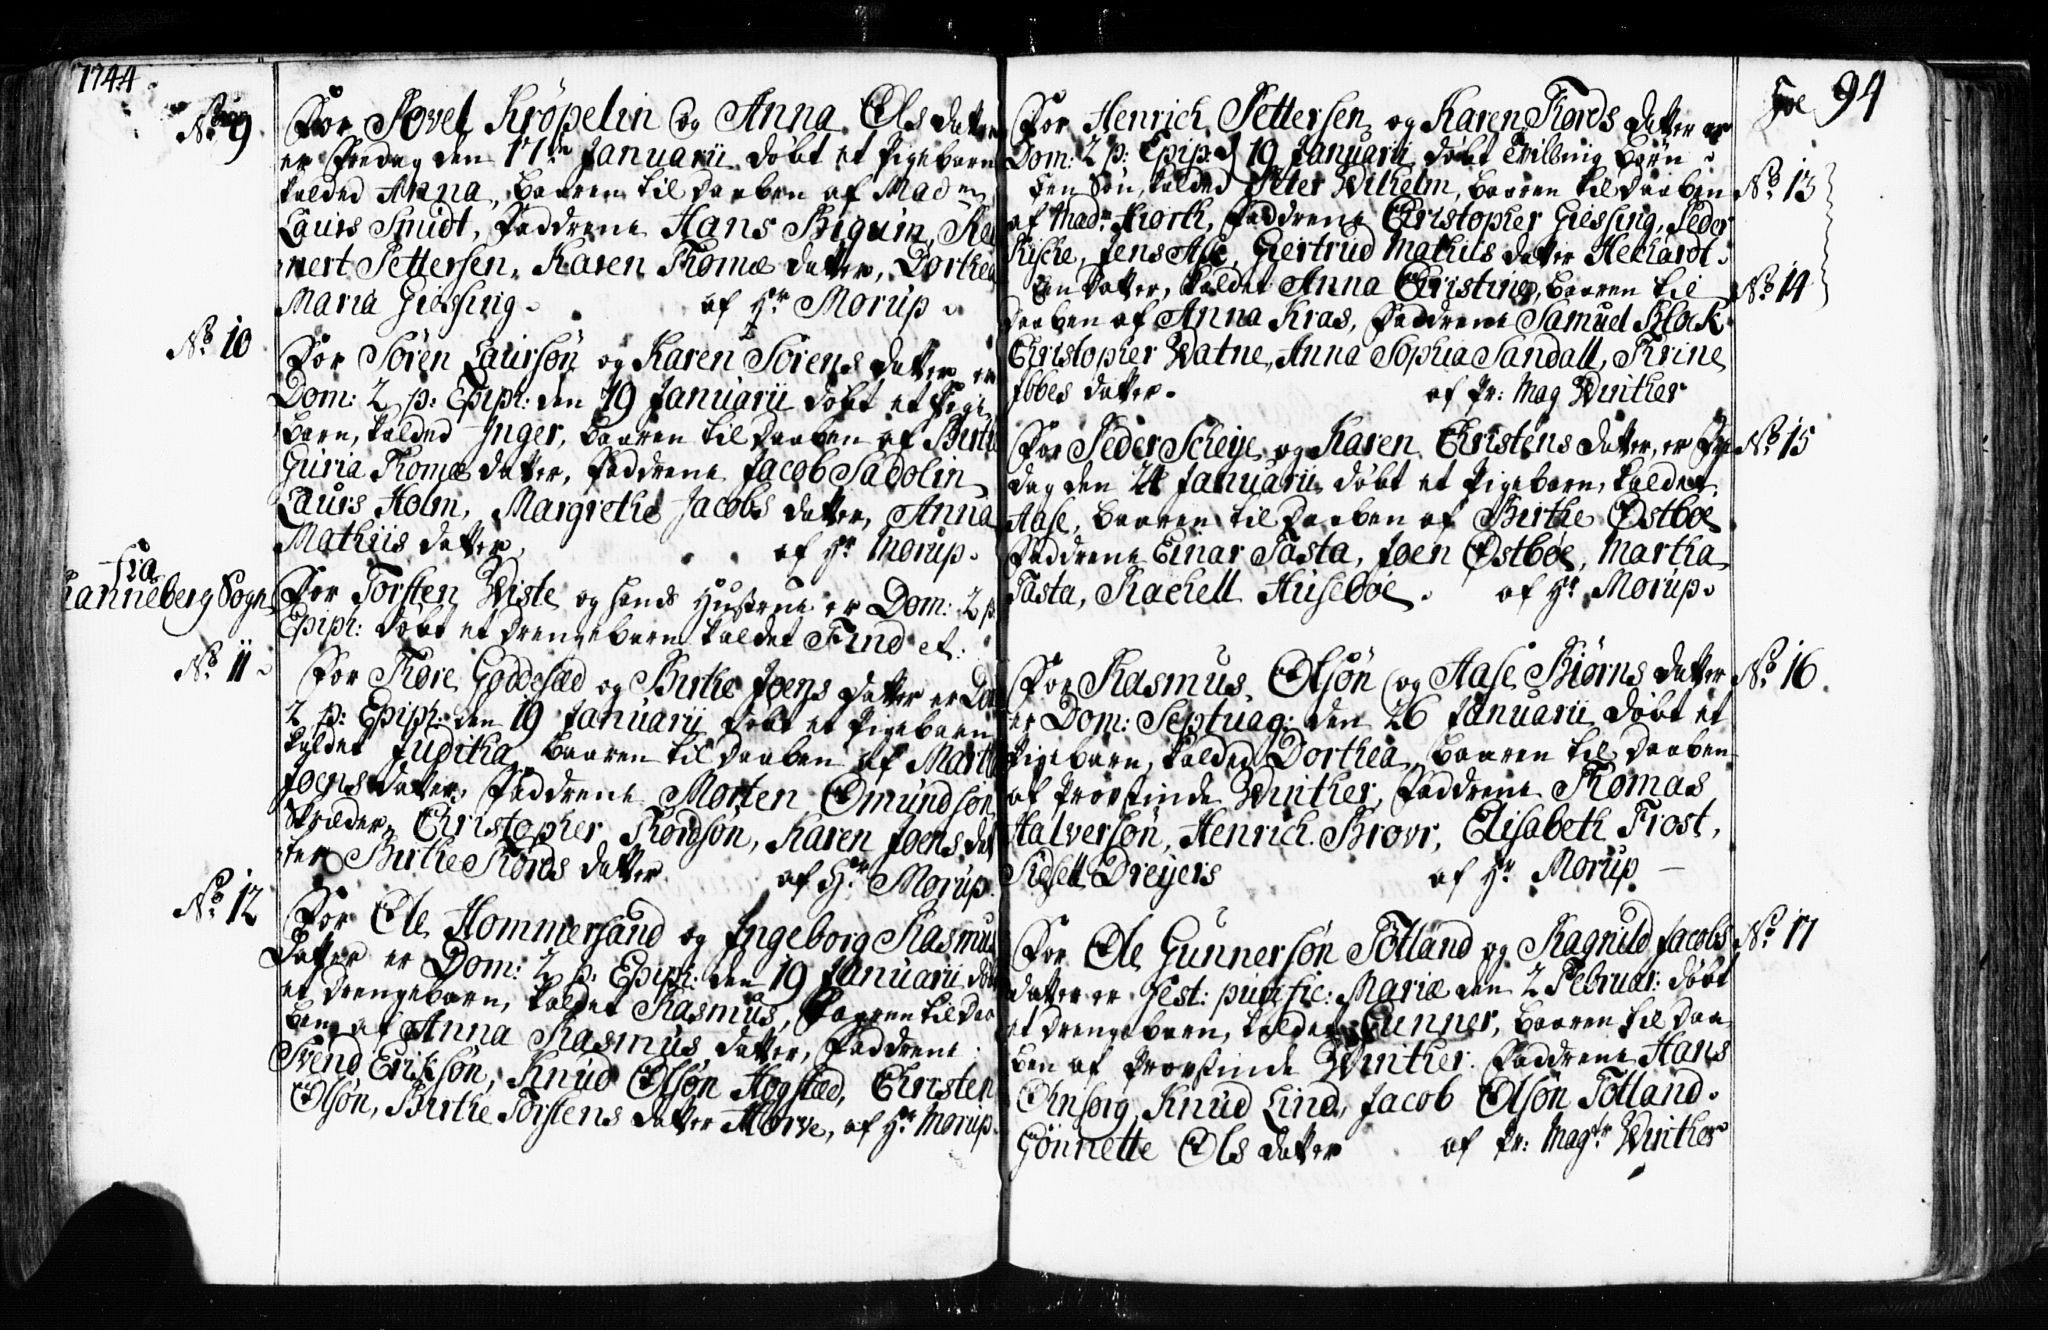 1744
No 9
For Povel Kröpelin og Anna Ols datter
er Fredag den 17de Januarii døbt et Pigebarn
kalded Anna, baaren til daaben af Madm
Laurs Smidt, Faddrene Hans Biguin,
mert Pettersen, Karen Thomæ datter, Dorthea
Maria Giessing. af Hr Morup.
No 10
For Sören Laursön og Karen Sörens datter er
Dom: 2 p: Epiph: den 19 Januarii døbt et Pige
barn, kalded Inger, baaren til daaben af Birte
Guria Thomæ datter, Faddrene Jacob Sadolin
Laurs Holm, Margrethe Jacobs datter, Anna
Mathiis datter, af Hr Morup.
fra
Ranneberg Sogn
For Torsten Viste og hands Hustrue er Dom: 2 p:
Epiph: døbt et drengebarn kaldet Find etc:
No 11
For Thore Goddesæd og Birthe Joens datter er Dom
2 p: Epiph: den 19 Januarii døbt et Pigebarn
kaldet Juditha, baaren til daaben af Martha
Joens datter, Faddrene Morten Omundsön
Skræder, Christopher Thordsön, Karen Joens dat
ter Birthe Thords datter af Hr Morup.
No 12
For Ole Hommersand og Ingeborg Rasmus
datter er Dom: 2 p: Epiph: den 19 Januarii døbt
et drengebarn, kaldet Rasmus, baaren til daa
ben af Anna Rasmus datter, Faddrene
Svend Erichsön, Knud Olsön Hogstad, Christen
Olsön, Birthe Torstens datter Horve, af Hr Morup.
Fol 94
For Henrich Pettersen og Karen Thords datter er
Dom: 2 p: Epip: d 19 Januarii døbt Tvilling børn
No 13
Een Søn, kalded Petter Wilhelm, baaren til daaben
af Madm Hiorth, Faddrene Christopher Giessing, Peder
Kische, Jens Ase, Giertrud Mathiis datter Heckardt.
No 14
Een datter, kaldet Anna Christine, baaren til
daaben af Anna Kras, Faddrene Samuel Block
Christopher Watne, Anna Sophia Sandall, Thrine
Ibbes datter. af Pr: Mag Winther
No 15
For Peder Scheije og Karen Christens datter, er Fre
dag den 24 Januarii døbt et Pigebarn, kaldet
Aase, baaren til daaben af Birthe Østbøe
Faddrene Einar Tasta, Joen Østbøe, Martha
Tasta, Rachell Husebøe. af Hr Morup.
No 16
For Rasmus Olsön og Aase Biørns datter
er Dom: Septuag: den 26 Januarii døbt et
Pigebarn, kalded Dorthea, baaren til daaben
af Provstinde Winther, Faddrene Thomas
Halversön, Henrich Brovr, Elisabeth Frost,
Sidsell Dreyers af Hr Morup
No 17
For Ole Gunnersön Totland og Ragnild Jacobs
datter er Fest: purific: Mariæ den 2 Februar: døbt
et drengebarn, kaldet Gunner, baaren til daa
ben af Provstinde Winther. Faddrene Hans
Ohnsorg, Knud Lind, Jacob Olsön Totland.
Gönnette Ols datter af Pr: Magtr Winther